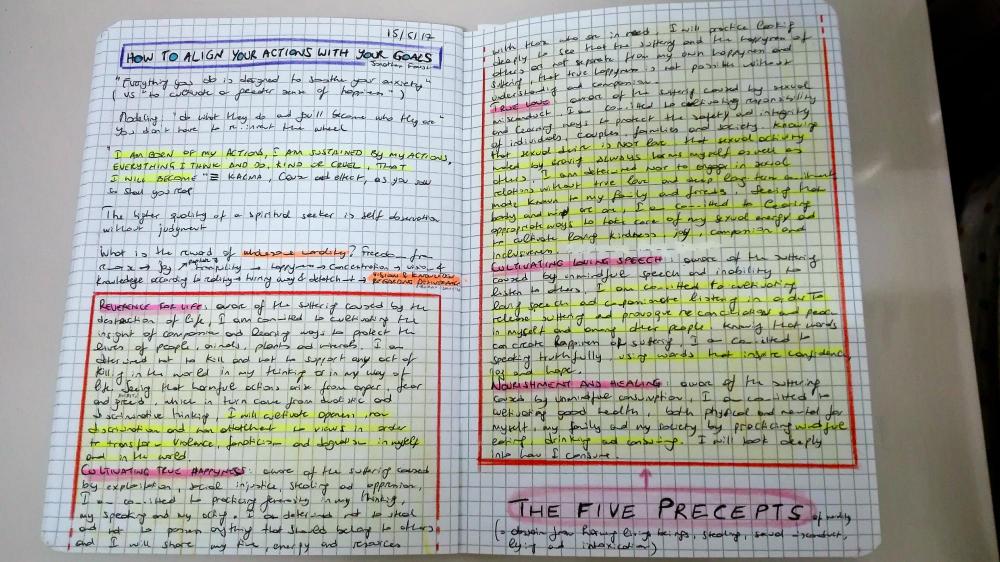 15/5/17
HOW TO ALIGN YOUR ACTIONS WITH YOUR GOALS
"Everything you do is designed to soothe your anxiety"
(VS "to cultivate a greater sense of happiness")
Modeling: "do what they do and you'll become who they are"
You don't have to reinvent the wheel
"I AM BORN OF MY ACTIONS, I AM SUSTAINED BY MY ACTIONS,
EVERYTHING I THINK AND DO, KIND OR CRUEL, THAT
I WILL BECOME" ≡ KARMA, Cause and effect, as you sow
so shall you reap
The higher quality of a spiritual seeker is self observation
without judgment
What is the reward of wholesome morality? Freedom from
→ Joy → tranquility → happyness → concentration → vision &
knowledge according to reality → turning away & detachment → VISION & KNOWLEDGE
REGARDING DELIVERANCE
REVERENCE FOR LIFE: aware of the suffering caused by the
destruction of life, I am committed to cultivating the
insight of compassion and learning ways to protect the
lives of people, animals, plants and minerals. I am
determined not to kill and not to support any act of
killing in the world in my thinking or in my way of
life. Seeing that harmful actions arise from anger, fear
and greed, which in turn come from dualistic and
discriminative thinking, I will cultivate openness, non
discrimination and non attachment to views in order
to transform violence, fanaticism and dogmatism in myself
and in the world.
CULTIVATING TRUE HAPPYNESS: aware of the suffering caused
by exploitation, social injustice, stealing and oppression,
I am committed to practicing generosity in my thinking,
my speaking and my acting. I am determined not to steal
and not to possess anything that should belong to others
and I will share my time, energy and resources
with those who are in need. I will practice looking
deeply to see that the suffering and the happyness of
others are not separate from my own happyness and
suffering, that true happyness is not possible without
understanding and compassion.
TRUE LOVE: aware of the suffering caused by sexual
misconduct, I am committed to cultivating responsibility
and learning ways to protect the safety and integrity
of individuals, couples, families and society. Knowing
that sexual desire is not love, that sexual activity
moved by craving always harms myself as well as
others, I am determined not to engage in sexual
relations without true love and deep long term commitment
made known to my family and friends. Seeing that
body and mind are one, I am committed to learning
appropriate ways to take care of my sexual energy and
to cultivate loving kindness, joy, compassion and
inclusiveness.
CULTIVATING LOVING SPEECH: aware of the suffering
caused by unmindful speech and inability to
listen to others, I am committed to cultivating
loving speech and compassionate listening in order to
release suffering and provoque reconciliation and peace
in myself and among other people. Knowing that words
can create happiness or suffering, I am committed to
speaking truthfully, using words that inspire confidence,
joy and hope.
NOURISHMENT AND HEALING: aware of the suffering
caused by unmindful consumption, I am committed to
cultivating good health, both physical and mental for
myself, my family and my society by practicing mindful
eating, drinking and consuming. I will look deeply
into how I consume.
THE FIVE PRECEPTS of morality
(to abstain from harming living beings, stealing, sexual misconduct,
lying and intoxication)